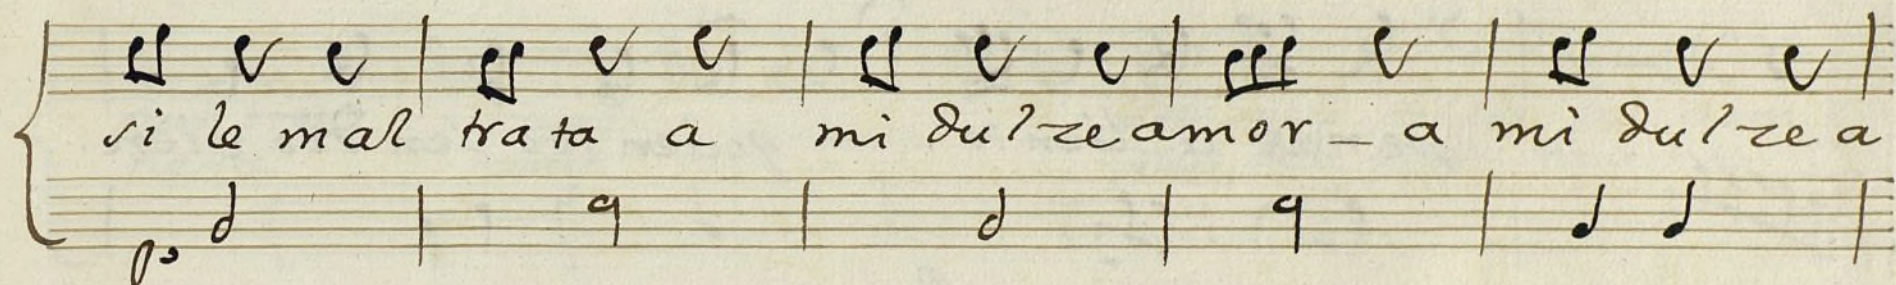 si le mal trata a mi dulze amor _ a mi dulze a
po